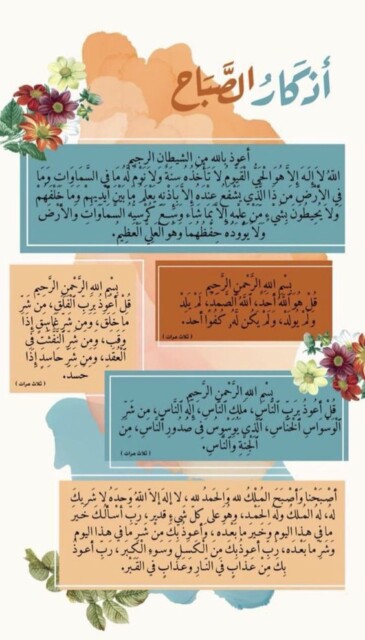 أذكار الصَّبَاح
أعوذ بالله من الشيطان الرجيم
اللَّهُ لاَ إِلَهَ إِلاَّ هُوَ الْحَيُّ الْقَيُّومُ لاَ تَأْخُذُهُ سِنَةٌ وَلاَ نَوْمٌ لَّهُ مَا فِي السَّمَاوَاتِ وَمَا
فِي الأَرْضِ مَن ذَا الَّذِي يَشْفَعُ عِنْدَهُ إِلاَّ بِإِذْنِهِ يَعْلَمُ مَا بَيْنَ أَيْدِيهِمْ وَمَا خَلْفَهُمْ
وَلاَ يُحِيطُونَ بِشَيْءٍ مِّنْ عِلْمِهِ إِلاَّ بِمَا شَاء وَسِعَ كُرْسِيُّهُ السَّمَاوَاتِ وَالأَرْضَ
وَلاَ يَؤُودُهُ حِفْظُهُمَا وَهُوَ الْعَلِيُّ الْعَظِيمُ.
بِسْمِ اللهِ الرَّحْمَنِ الرَّحِيمِ
قُلْ هُوَ اللَّهُ أَحَدٌ، اللَّهُ الصَّمَدُ، لَمْ يَلِدْ
وَلَمْ يُولَدْ، وَلَمْ يَكُن لَّهُ كُفُوًا أَحَدٌ.
( ثلاث مرات )
بِسْمِ اللهِ الرَّحْمَنِ الرَّحِيمِ
قُلْ أَعُوذُ بِرَبِّ الْفَلَقِ، مِن شَرِّ
مَا خَلَقَ، وَمِن شَرِّ غَاسِقٍ إِذَا
وَقَبَ، وَمِن شَرِّ النَّفَّثَتِ فِي
الْعُقَدِ، وَمِن شَرِّ حَاسِدٍ إِذَا
حَسَدَ.
( ثلاث مرات )
بِسْمِ اللهِ الرَّحْمَنِ الرَّحِيمِ
قُلْ أَعُوذُ بِرَبِّ النَّاسِ، مَلِكِ النَّاسِ، إِلَهِ النَّاسِ، مِن شَرِّ
الْوَسْوَاسِ الْخَنَّاسِ، الَّذِي يُوَسْوِسُ فِي صُدُورِ النَّاسِ، مِنَ
الْجِنَّةِ وَالنَّاسِ.
( ثلاث مرات )
أَصْبَحْنَا وَأَصْبَحَ المُلْكُ لله وَالحَمدُ لله ، لا إله إلا اللهُ وَحدَهُ لا شَريكَ
لهُ، لهُ المُلكُ ولهُ الحَمْد، وهُوَ على كلّ شَيءٍ قدير ، رَبِّ أسْألُكَ خَيرَ
ما في هذا اليوم وَخَيرَ ما بَعْدَه ، وَأَعوذُ بِكَ مِنْ شَرِّ ما في هذا اليوم
وَشَرِّ ما بَعْدَه، رَبِّ أَعوذُ بِكَ مِنَ الكَسَلِ وَسوءِ الكِبَر ، رَبِّ أَعوذُ
بِكَ مِنْ عَذابٍ في النّارِ وَعَذابٍ في القَبْر.